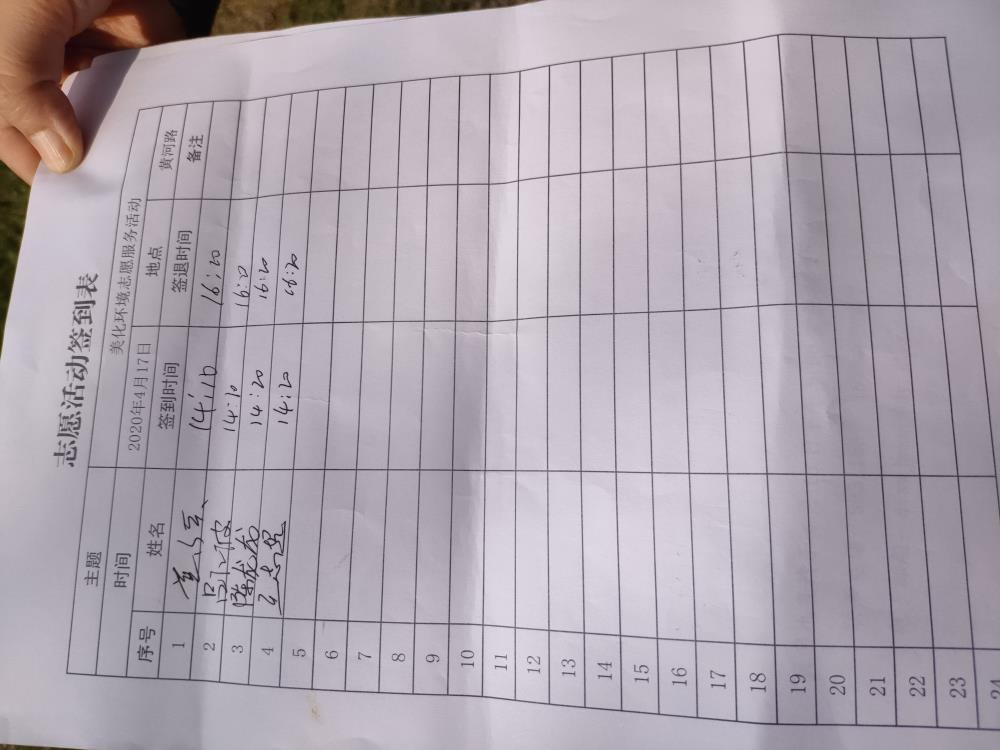 志愿活动签到表
主题 美化环境志愿服务活动
时间 2020年4月17日 地点 黄河路
序号 姓名 签到时间 签退时间 备注
1 14:10 16:20
2 14:10 16:20
3 陈龙成 14:20 16:20
4 王志坚 14:20 16:20
5
6
7
8
9
10
11
12
13
14
15
16
17
18
19
20
21
22
23
24